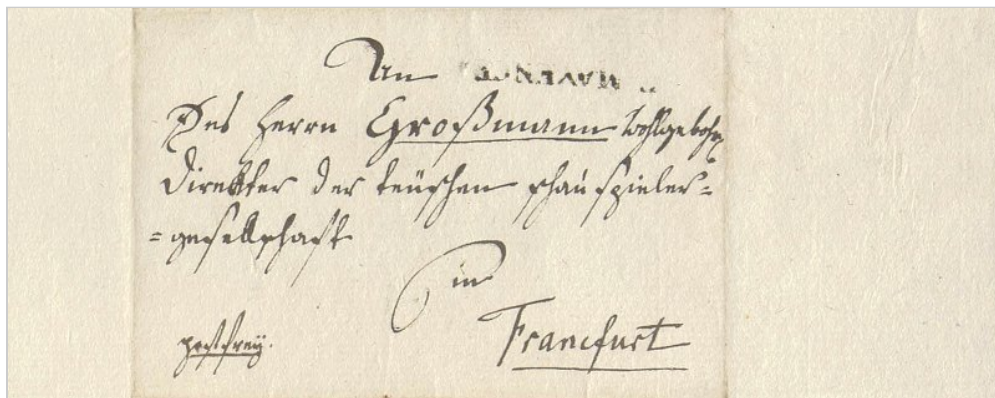 An
Des Herrn Großmann Wohlgebohr
Direkter der teüschen schauspieler=
=gesellschaft
in
Francfurt
postfreÿ.